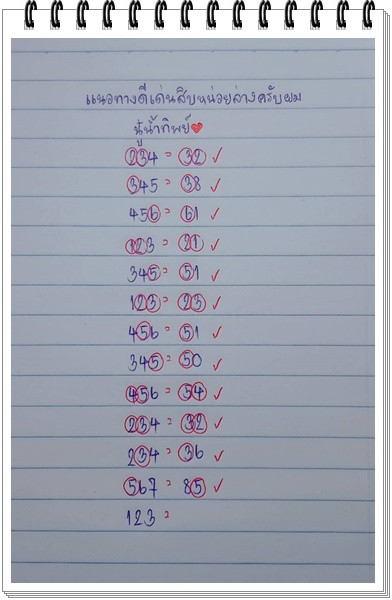 แนวทางดีเด่นสิบหน่วยล่างครับผม
นู๋น้ำทิพย์❤
234 = 32 ✓
345 = 38 ✓
456 = 61 ✓
123 = 21 ✓
345 = 51 ✓
123 = 23 ✓
456 = 51 ✓
345 = 50 ✓
456 = 54 ✓
234 = 32 ✓
234 = 36 ✓
567 = 85 ✓
123 =